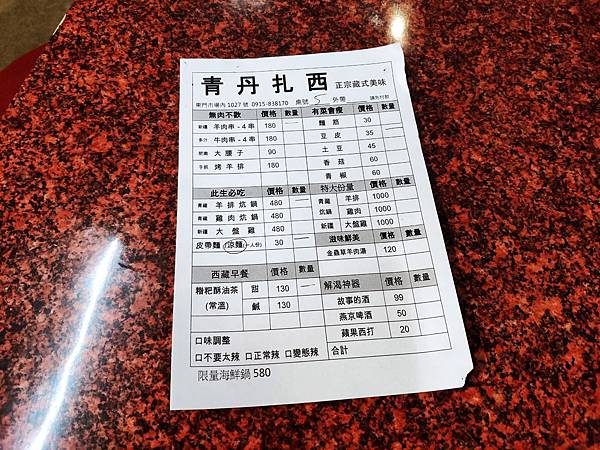 青丹扎西 正宗藏式美味
東門市場內 1027 號 0915-838170 桌號 5 外帶 請先付款
無肉不歡 價格 數量
新疆 羊肉串-4串 180
多汁 牛肉串-4串 180
大腰子 90
手抓 烤羊排 180
有菜會瘦 價格 數量
麵筋 30
豆皮 35
土豆 45
香菇 60
青椒 60
此生必吃 價格 數量
青藏 羊排炕鍋 480
青藏 雞肉炕鍋 480
新疆 大盤雞 480
皮帶麵 (涼麵)(一人份) 30
特大份量 價格 數量
青藏 羊排 1000
炕鍋 雞肉 1000
新疆 大盤雞 1000
滋味鮮美 價格 數量
金蟲草羊肉湯 120
西藏早餐 價格 數量
糌粑酥油茶 甜 130
(常溫) 鹹 130
解渴神器 價格 數量
故事的酒 99
燕京啤酒 50
蘋果西打 20
合計
口味調整
口不要太辣 口正常辣 口變態辣
限量海鮮鍋 580